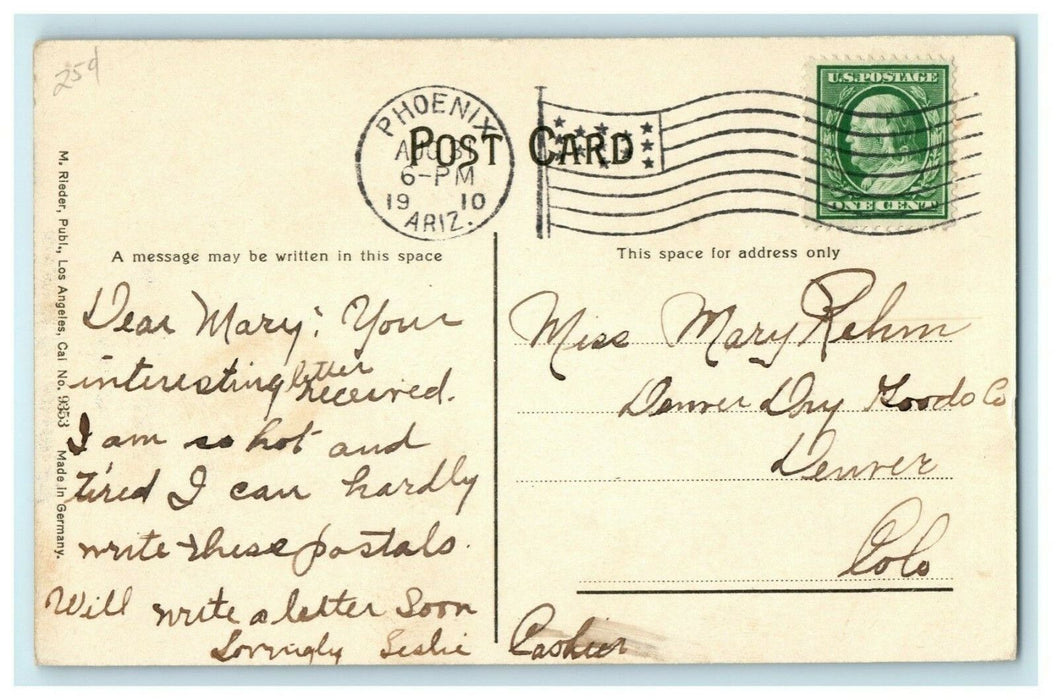 25¢
PHOENIX
AUG 31
6-PM
19 10
ARIZ.
POST CARD
U.S. POSTAGE
ONE CENT
M. Rieder, Publ., Los Angeles, Cal No. 9353 Made in Germany.
A message may be written in this space
Dear Mary; Your
interesting letter received.
I am so hot and
tired I can hardly
write these postals.
Will write a letter soon
Lovingly Leslie
This space for address only
Miss Mary Rehm
Denver Dry Goods Co
Denver
Colo
Cashier